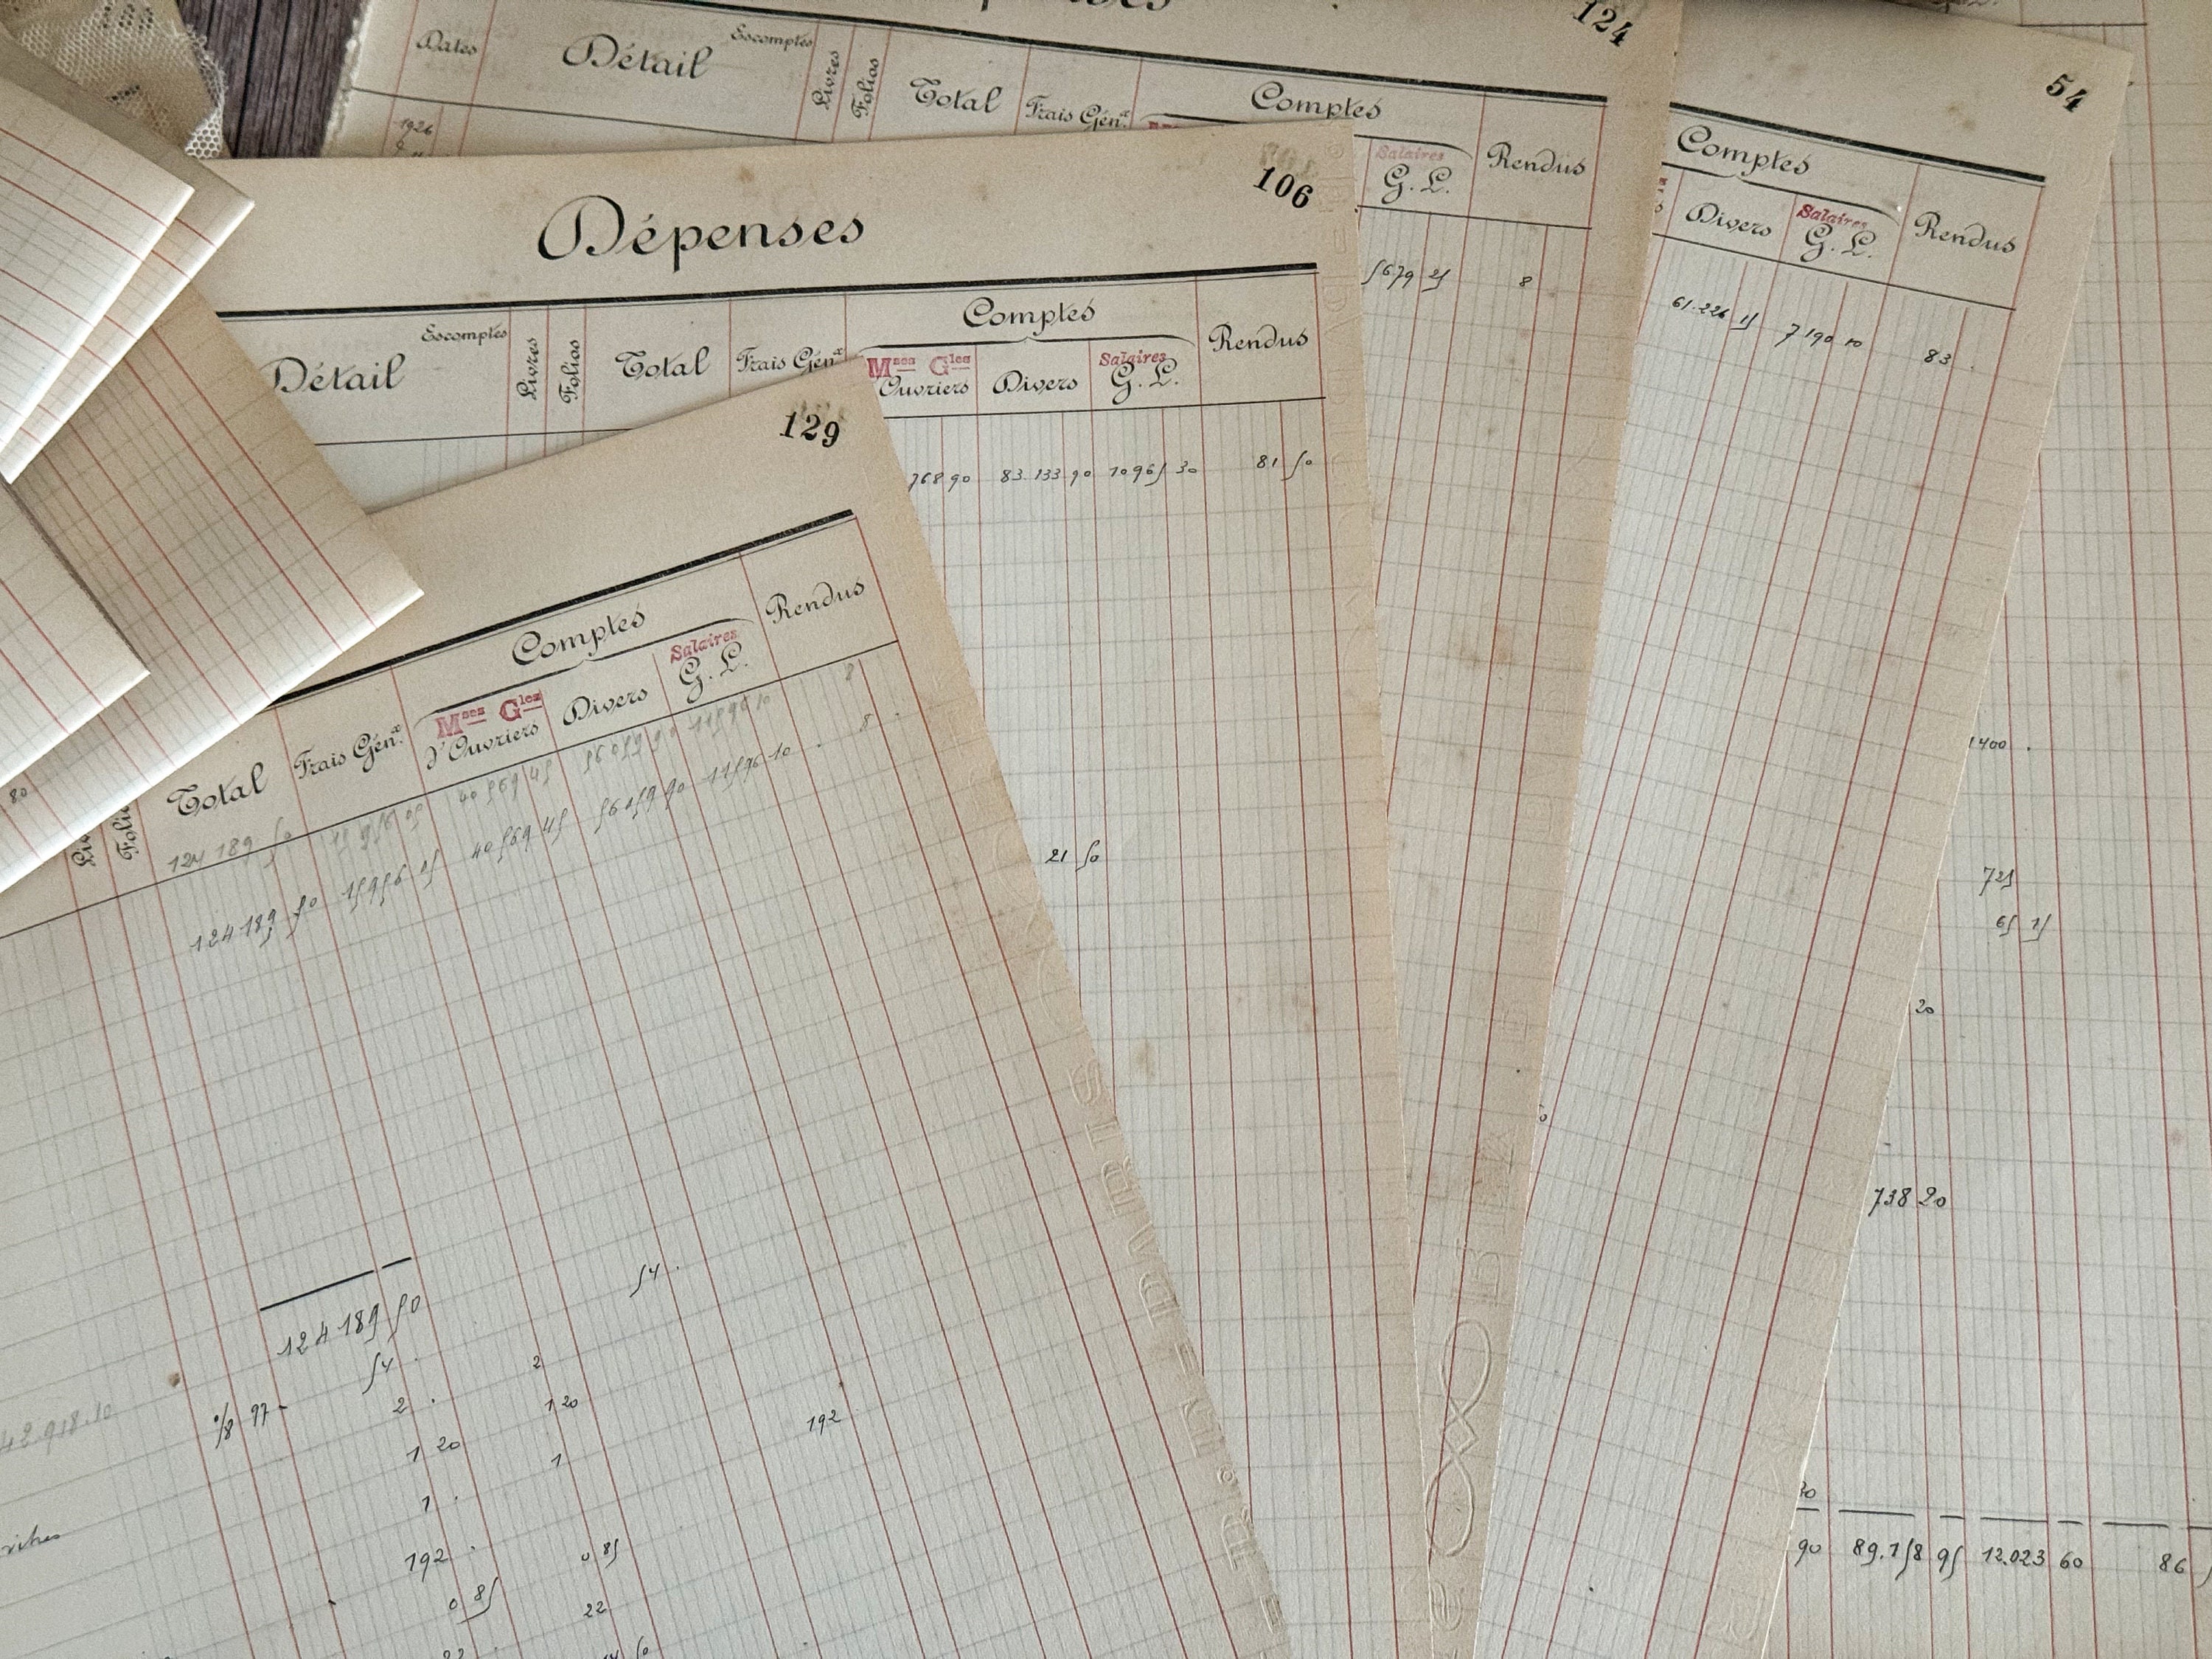 124
Dates
Détail
Escomptes
Livres
Folios
Total
Frais Gén.x
Comptes
Salaires
G. L.
Rendus
1926
5679 25
8
54
Comptes
Divers
Salaires
G. L.
Rendus
61.226 15
7190 10
83
106
Dépenses
Détail
Escomptes
Livres
Folios
Total
Frais Génx
Comptes
Mses Gles
Ouvriers
Divers
Salaires
G. L.
Rendus
768 90
83.133 90
10965 30
81 50
21 50
129
Comptes
Rendus
Total
Frais Gén.x
Mses Gles
d'Ouvriers
Divers
Salaires
G. L.
124 189 50
40 569 45
56 059 90
11596 10
8
124 189 50
15956 05
40 569 45
56 059 90
11596 10
8
124 189 50
54
54
2
2
97
1 20
1 20
1
1
192
192
0 85
0 85
22
42.918.10
80
1400
725
65 15
20
738 20
90
89.158 95
12.023 60
86